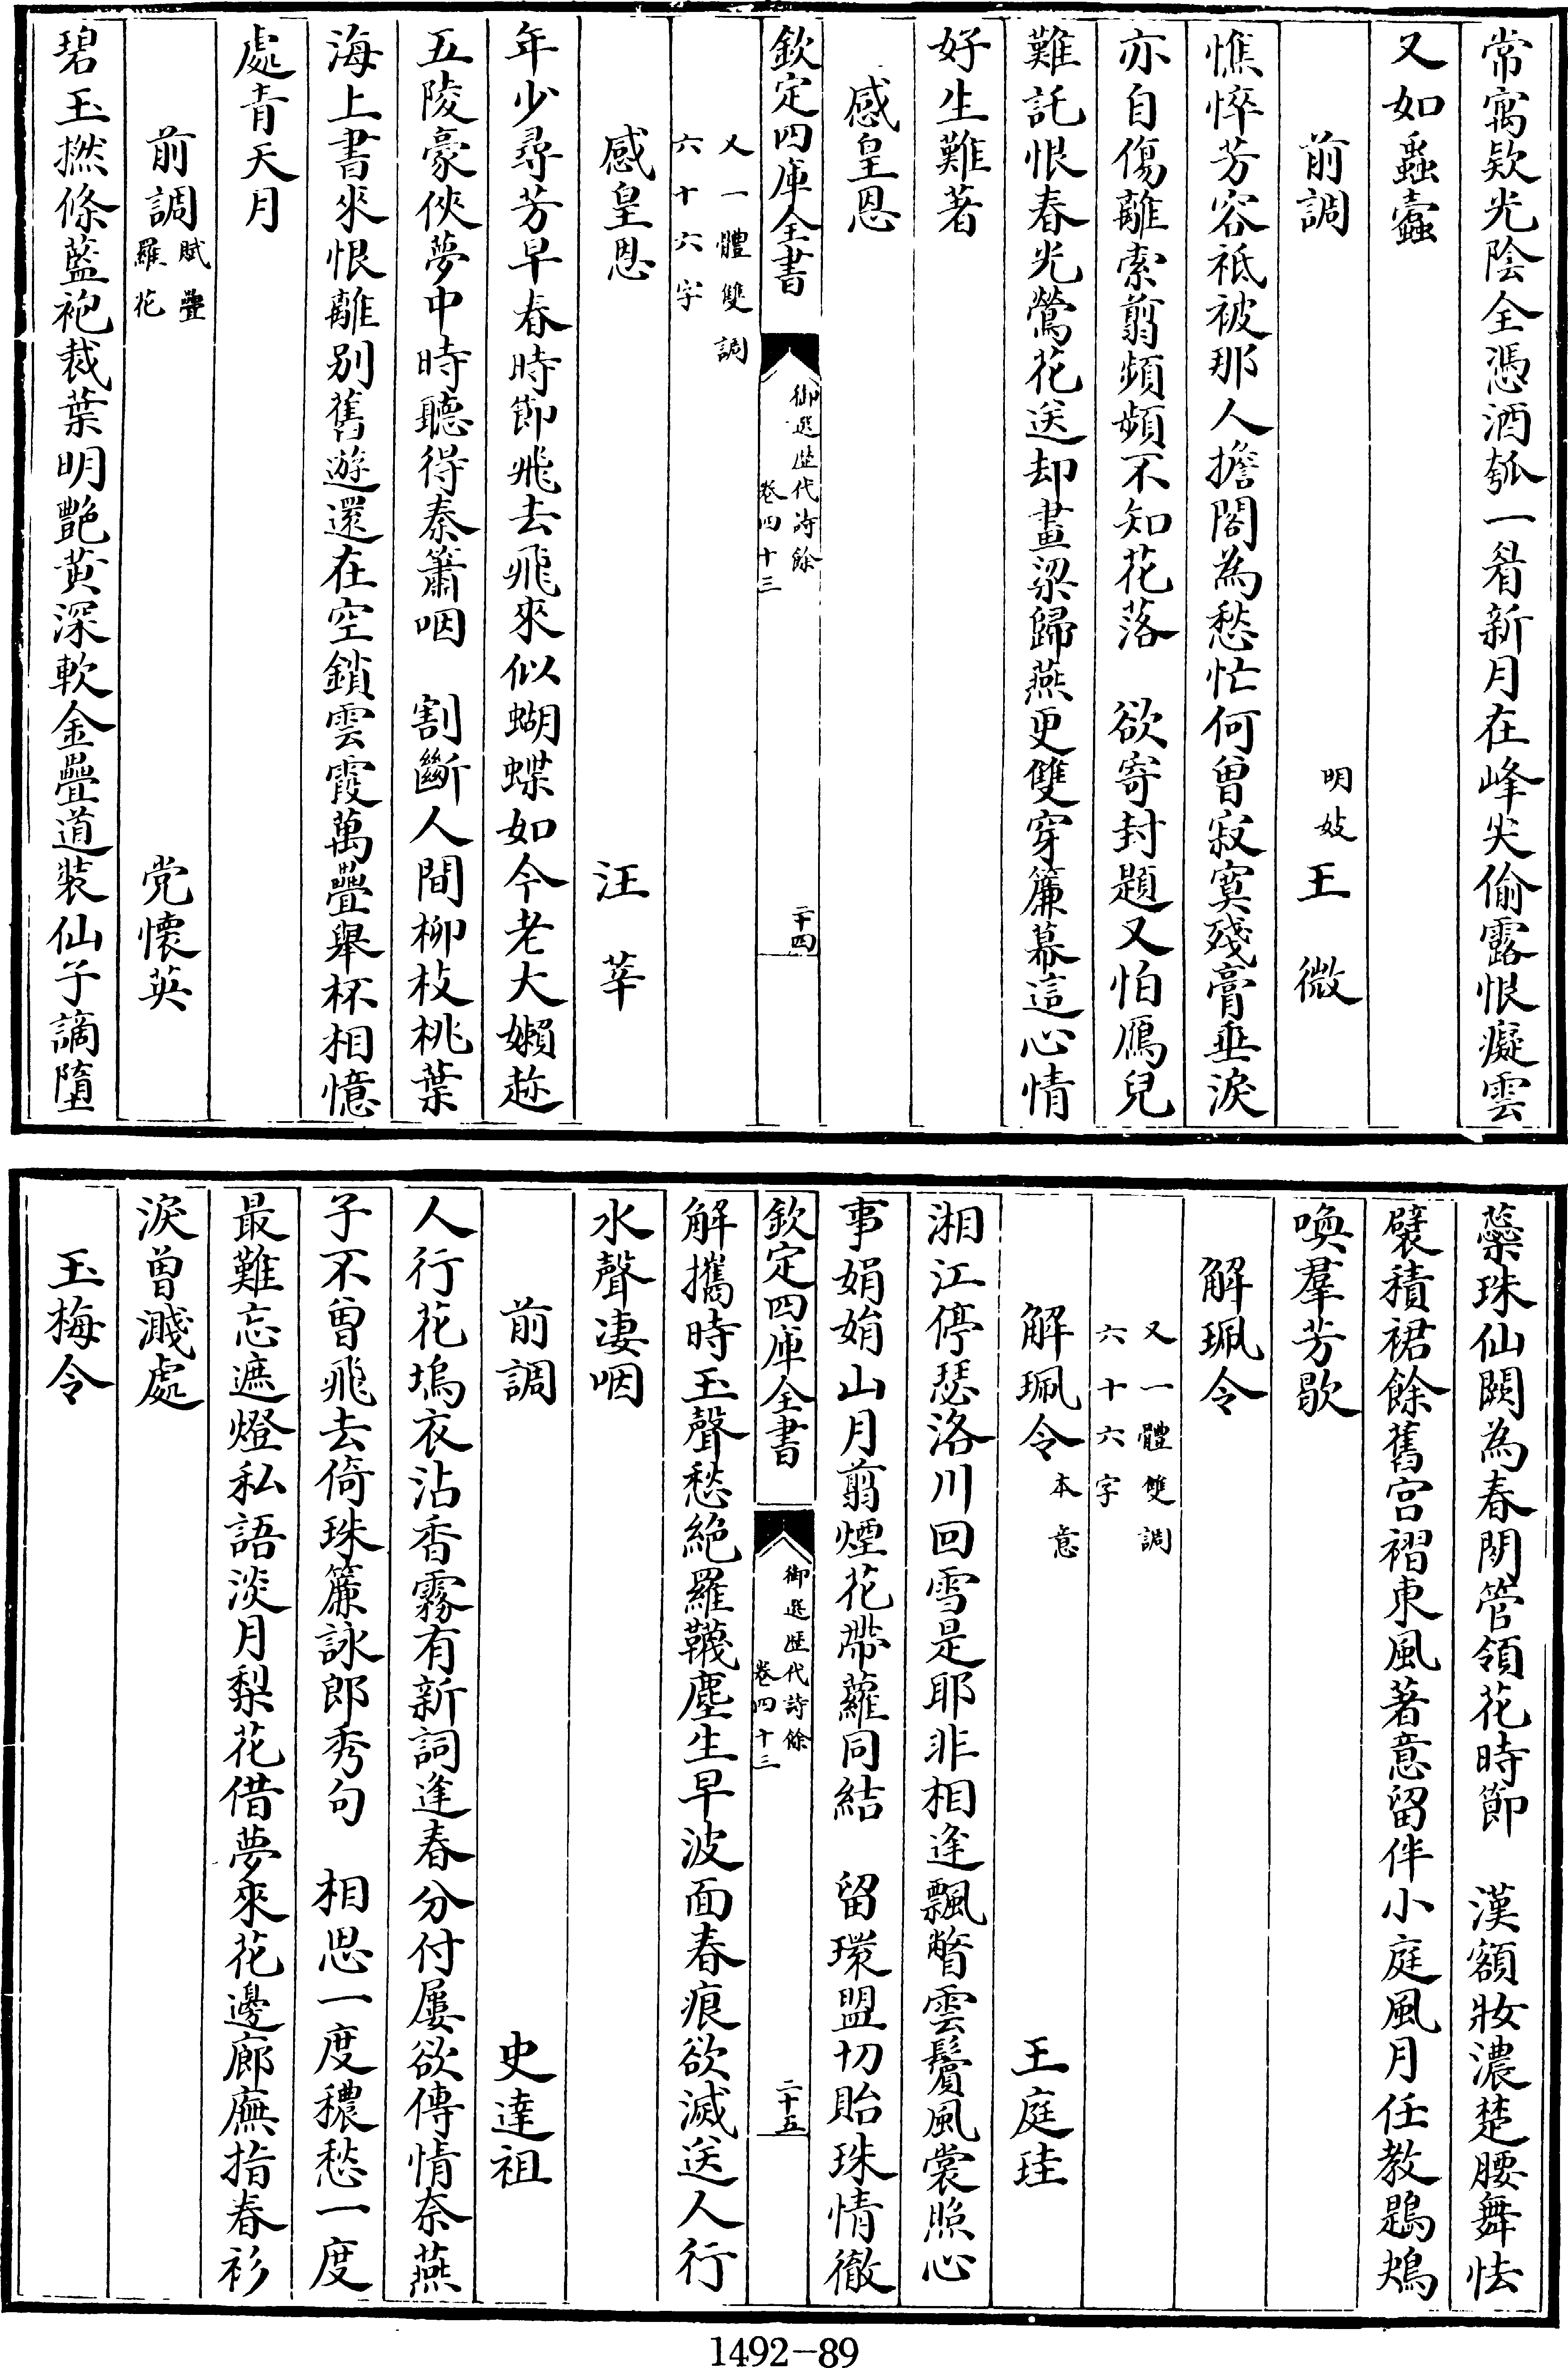 常寓欵光陰全憑酒瓠一眉新月在峰尖偷露恨癡雲
又如蝨蠹
前調 明妓王 微
憔悴芳容祗被那人擔閣為愁忙何曾寂寞殘膏垂淚
亦自傷離索翦頻頻不知花落 欲寄封題又怕鴈兒
難託恨春光鶯花送却畫梁歸燕更雙穿簾幕這心情
好生難著
感皇恩
欽定四庫全書 御選歷代詩餘 卷四十三 二十四
又一體雙調
六十六字
感皇恩 汪 莘
年少尋芳早春時節飛去飛來似蝴蝶如今老大嬾趁
五陵豪俠夢中時聽得秦簫咽 割斷人間柳枝桃葉
海上書來恨離別舊遊還在空鎖雲霞萬疊舉杯相憶
處青天月
前調 賦疊羅花 党懷英
碧玉撚條藍袍裁葉明艷黃深軟金疊道裝仙子謫墮
蘂珠仙闕為春閒管領花時節 漢額妝濃楚腰舞怯
襞積裙餘舊宮褶東風著意留伴小庭風月任教鶗鴂
喚羣芳歇
解珮令
又一體雙調
六十六字
解珮令 本意 王庭珪
湘江停瑟洛川回雪是耶非相逢飄瞥雲鬢風裳照心
事娟娟山月翦煙花帶蘿同結 留環盟切貽珠情徹
欽定四庫全書 御選歷代詩餘 卷四十三 二十五
解攜時玉聲愁絕羅韈塵生早波面春痕欲滅送人行
水聲凄咽
前調 史達祖
人行花塢衣沾香霧有新詞逢春分付屢欲傳情奈燕
子不曾飛去倚珠簾詠郎秀句 相思一度穠愁一度
最難忘遮燈私語淡月梨花借夢來花邊廊廡指春衫
淚曾濺處
玉梅令
1492-89